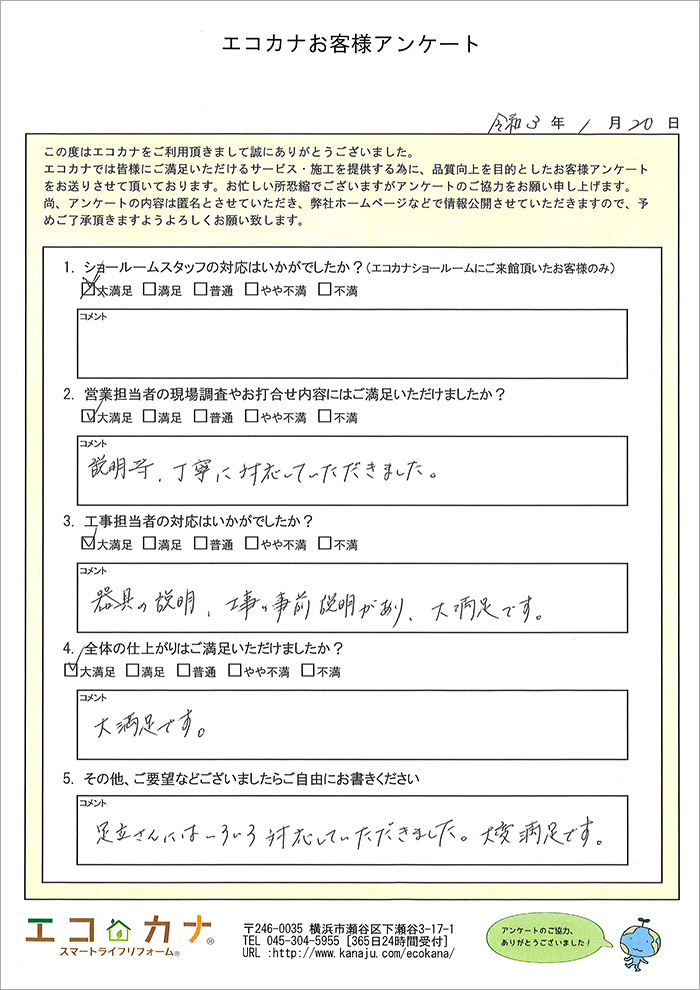 エコカナお客様アンケート
令和3年1月20日
この度はエコカナをご利用頂きまして誠にありがとうございました。
エコカナでは皆様にご満足いただけるサービス・施工を提供する為に、品質向上を目的としたお客様アンケート
をお送りさせて頂いております。お忙しい所恐縮でございますがアンケートのご協力をお願い申し上げます。
尚、アンケートの内容は匿名とさせていただき、弊社ホームページなどで情報公開させていただきますので、予
めご了承頂きますようよろしくお願い致します。
1. ショールームスタッフの対応はいかがでしたか？（エコカナショールームにご来館頂いたお客様のみ）
☑大満足 □満足 □普通 □やや不満 □不満
コメント
2. 営業担当者の現場調査やお打合せ内容にはご満足いただけましたか？
☑大満足 □満足 □普通 □やや不満 □不満
コメント
説明等、丁寧に対応していただきました。
3. 工事担当者の対応はいかがでしたか？
☑大満足 □満足 □普通 □やや不満 □不満
コメント
器具の説明、工事の事前説明があり、大満足です。
4. 全体の仕上がりはご満足いただけましたか？
☑大満足 □満足 □普通 □やや不満 □不満
コメント
大満足です。
5. その他、ご要望などございましたらご自由にお書きください
コメント
足立さんにはいろいろ対応していただきました。大変満足です。
エコカナ®
スマートライフリフォーム®
〒246-0035 横浜市瀬谷区下瀬谷3-17-1
TEL 045-304-5955 [365日24時間受付]
URL :http://www.kanaju.com/ecokana/
アンケートのご協力、
ありがとうございました！